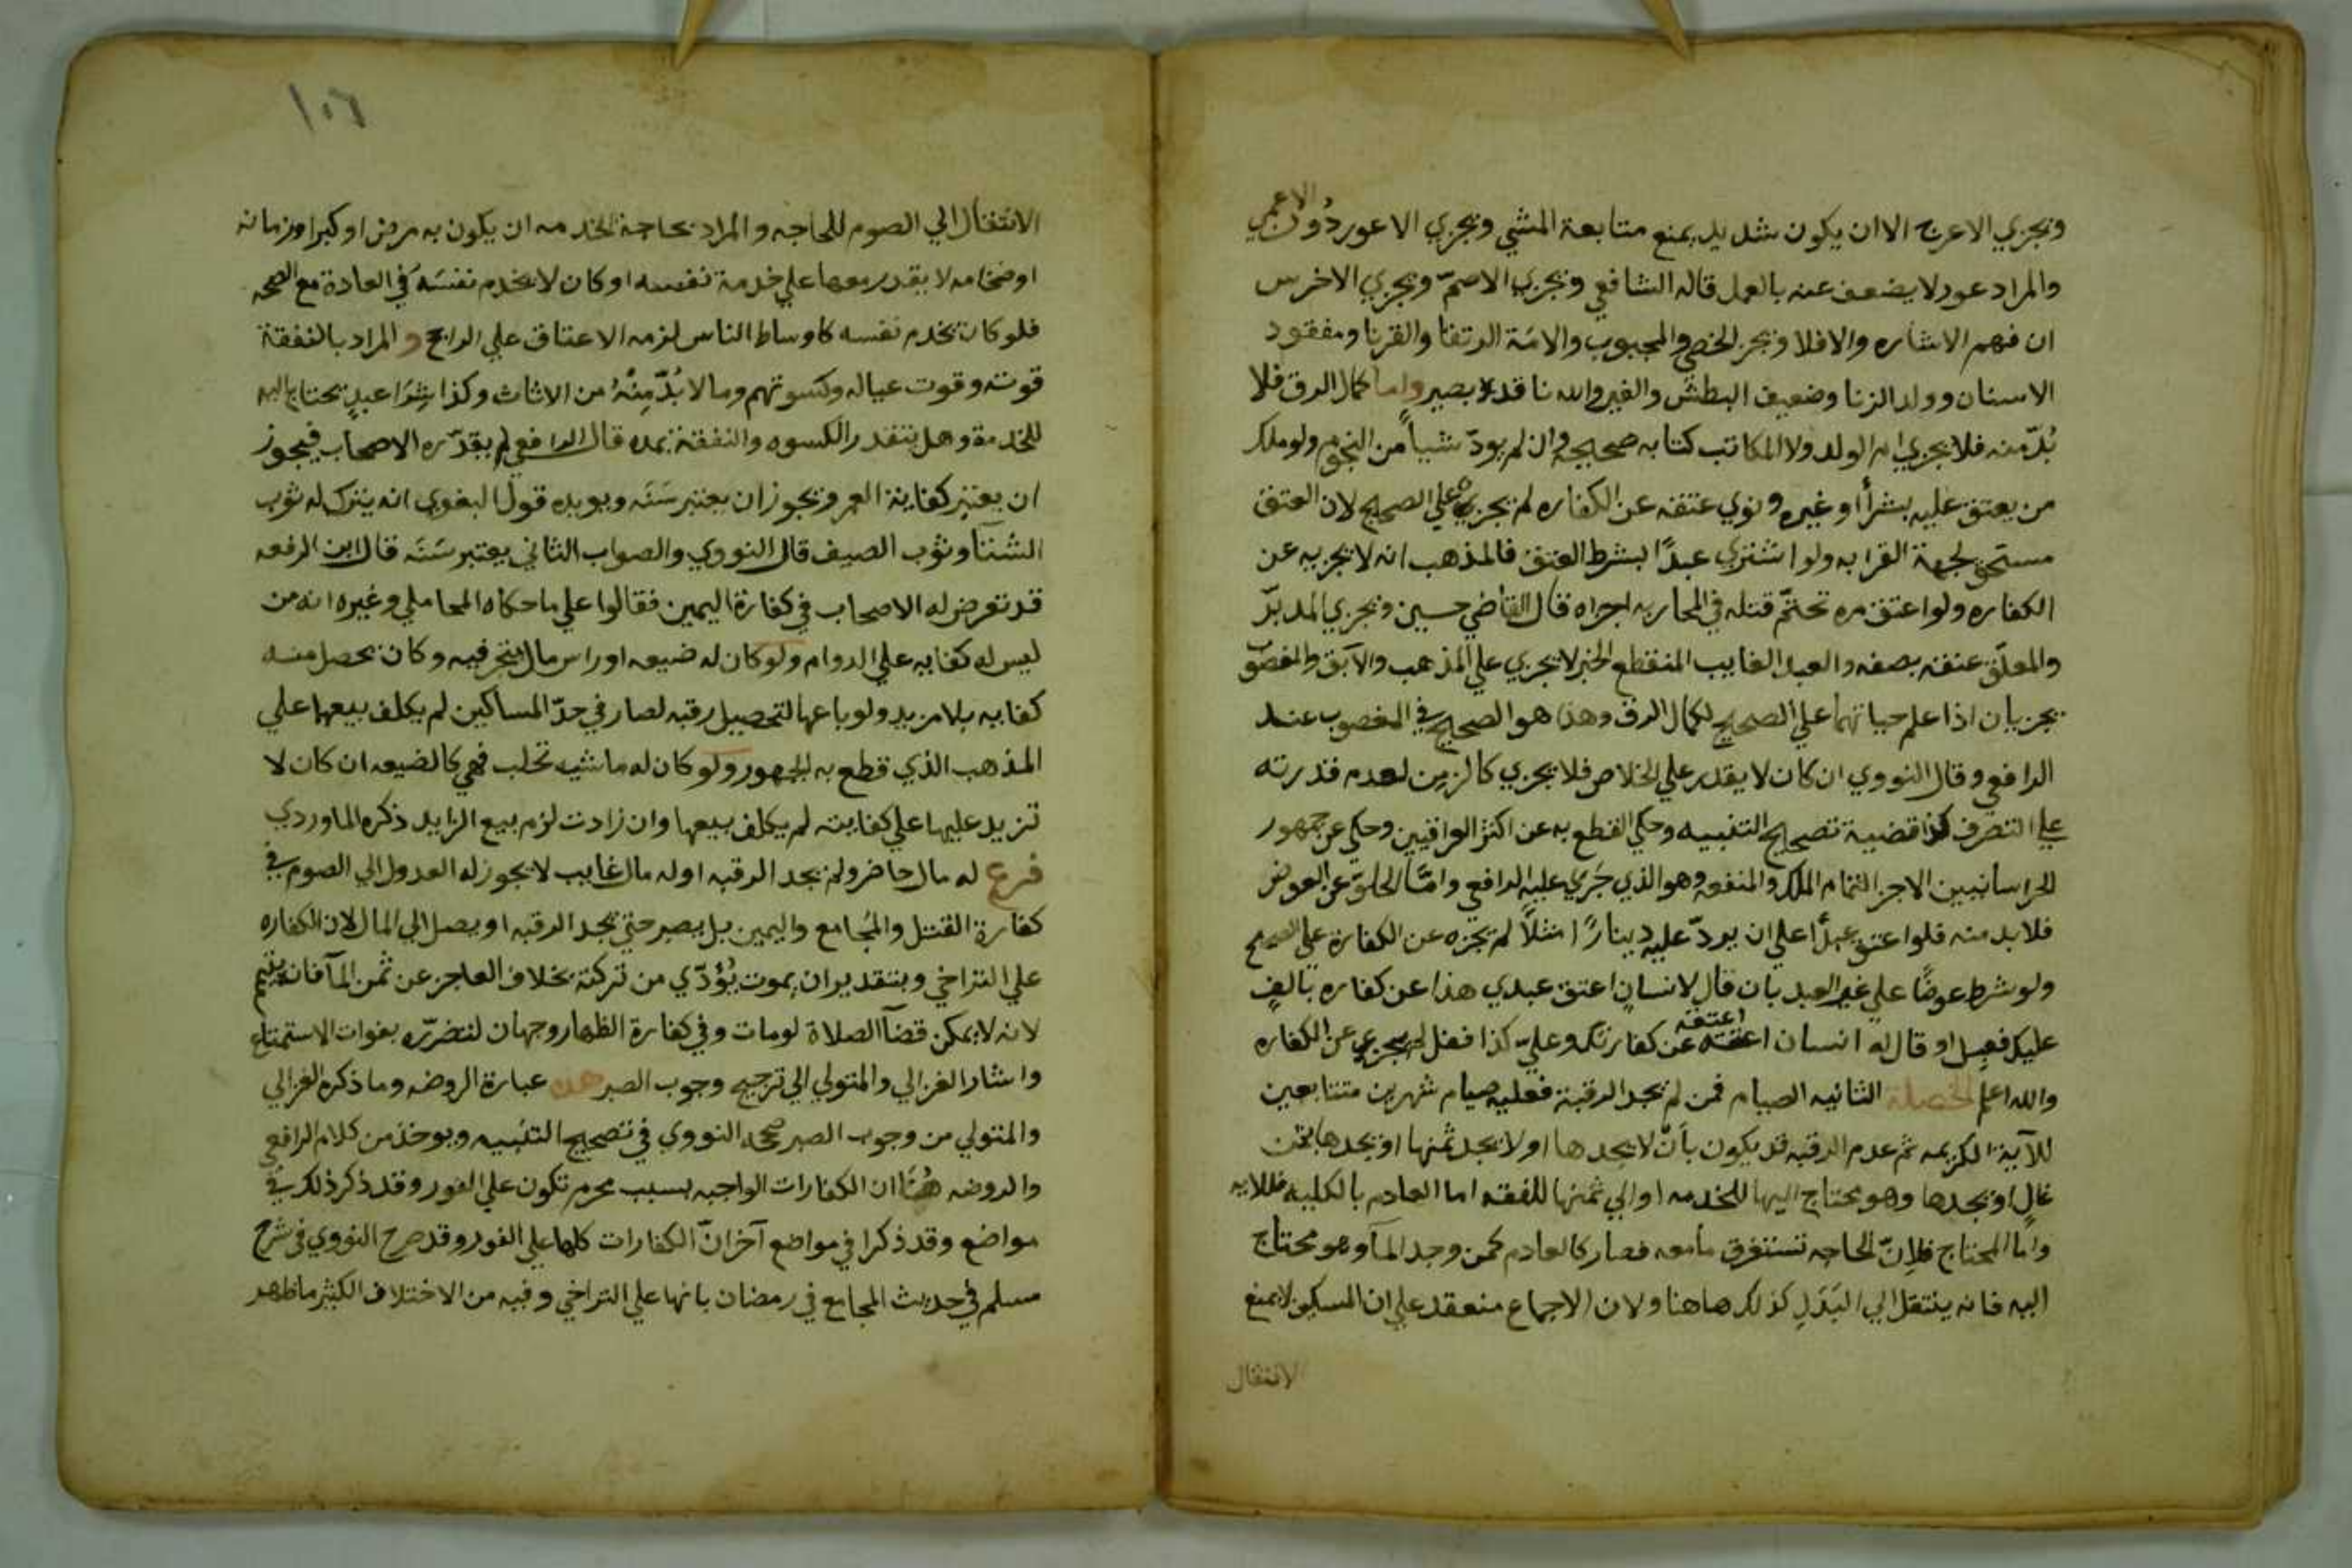 ويجزي الاعرج الا ان يكون شديد يمنع متابعة المشي ويجزي الاعور دون الاعمي
والمراد عور لا يضعف عنه بالعمل قاله الشافعي ويجزي الاصمّ ويجزي الاخرس
ان فهم الاشاره والا فلا ويجز الخصي والمجبوب والامة الرتقا والقرنا ومفقود
الاسنان وولد الزنا وضعيف البطش والغير والله نا قد لا بصير واما كمال الرق فلا
بُدّ منه فلا يجزي ام الولد ولا المكاتب كتابه صحيحه وان لم يودّ شيأ من النجوم ولو ملك
من يعتق عليه بشرأ او غيره ونوي عتقه عن الكفاره لم يجزيه علي الصحيح لان العتق
مستحق لجهة القرابه ولو اشتري عبدًا بشرط العتق فالمذهب انه لا يجزيه عن
الكفاره ولو اعتق مره تحتّم قتله في المحاربه اجزاه قال القاضي حسين ويجزي المدبّر
والمعلّق عتقه بصفه والعبد الغايب المنقطع الخبر لا يجزي علي المذهب والآبق والمغصوب
يجزيان اذا علم حياتهما علي الصحيح لكمال الرق وهذا هو الصحيح في المغصوب عند
الرافعي وقال النووي ان كان لا يقدر علي الخلاص فلا يجزي كالزمِن لعدم قدرته
علي التصرف كذا قضية تصحيح التنبيه وحكي القطع به عن اكثر العراقيين وحكي عن جمهور
الخراسانيين الاجزا لتمام الملك والمنفعه وهو الذي جَري عليه الرافعي وامّا الخلوّ عن العوض
فلا بد منه فلو اعتق عبدًا علي ان يردّ عليه دينارًا مثلًا لم يجزه عن الكفارة علي الصحيح
ولو شرط عوضًا علي غير العبد بان قال لانسانٍ اعتق عبدي هذا عن كفاره بالفٍ
عليك فقبل او قال له انسان اعتقه عن كفارتك وعليّ كذا ففعل لم يجزي عن الكفاره
والله اعلم الخصلة الثانيه الصيام فمن لم يجد الرقبة فعليه صيام شهرين متتابعين
للآية الكريمه ثم عدم الرقبه قد يكون بأن لا يجدها او لا يجد ثمنها او يجدها بثمن
غالٍ او يجدها وهو محتاج اليها للخدمه او الي ثمنها للنفقه اما العادم بالكليه فللايه
واما المحتاج فلانّ الحاجه تستغرق ما معه فصار كالعادم كمن وجد المآ وهو محتاج
اليه فانه ينتقل الي البَدَلِ كذلك هاهنا ولان الاجماع منعقد علي ان المسكين لا يمنع
الانتقال
١٠٦
الانتقال الي الصوم للحاجه والمراد بحاجة الخدمه ان يكون به مرض او كبر او زمانه
او ضخامه لا يقدر معها علي خدمة نفسه او كان لا يخدم نفسَه في العادة مع الصحه
فلو كان يخدم نفسه كاوساط الناس لزمه الاعتاق علي الراجح والمراد بالنفقة
قوته وقوت عياله وكسوتهم وما لا بُدّ مِنْهُ من الاثاث وكذا شِرَا عبدٍ يحتاج اليه
للخدمة وهل يتقدر الكسوه والنفقة بمده قال الرافعي لم يقدّره الاصحاب فيجوز
ان يعتبر كفاية العمر ويجوز ان يعتبر سَنَه ويويده قول البغوي انه يترك له ثوب
الشتآ وثوب الصيف قال النووي والصواب الثاني يعتبر سَنَه قال ابن الرفعه
قد تعرض له الاصحاب في كفارة اليمين فقالوا علي ما حكاه المحاملي وغيره انه من
ليس له كفايه علي الدوام ولو كان له ضيعه او راس مال يتجر فيه وكان يحصل منه
كفايه بلا مزيد ولو باعها لتحصيل رقبه لصار في حدّ المساكين لم يكلف بيعها علي
المذهب الذي قطع به الجمهور ولو كان له ماشيه تحلب فهي كالضيعه ان كان لا
تزيد عليها علي كفايته لم يكلف بيعها وان زادت لزم بيع الزايد ذكره الماوردي
فرع له مال حاضر ولم يجد الرقبه او له مال غايب لا يجوز له العدول الي الصوم في
كفارة القتل والمُجامع واليمين بل يصبر حتي يجد الرقبه او يصل الي المال لان الكفاره
علي التراخي وبتقدير ان يموت يُؤدّي من تركته بخلاف العاجز عن ثمن المآ فانه يتيمم
لانه لا يمكن قضآ الصلاة لو مات وفي كفارة الظهار وجهان لتضرّره بفوات الاستمتاع
واشار الغزالي والمتولي الي ترجيح وجوب الصبر هذه عبارة الروضه وما ذكره الغزالي
والمتولي من وجوب الصبر صححه النووي في تصحيح التنبيه ويوخذ من كلام الرافعي
والروضه هُنَا ان الكفارات الواجبه بسبب محرم تكون علي الفور وقد ذكر ذلك في
مواضع وقد ذكرا في مواضع آخر انّ الكفارات كلها علي الفور وقد صرح النووي في شرح
مسلم في حديث المجامع في رمضان بانها علي التراخي وفيه من الاختلاف الكثير ما ظهر